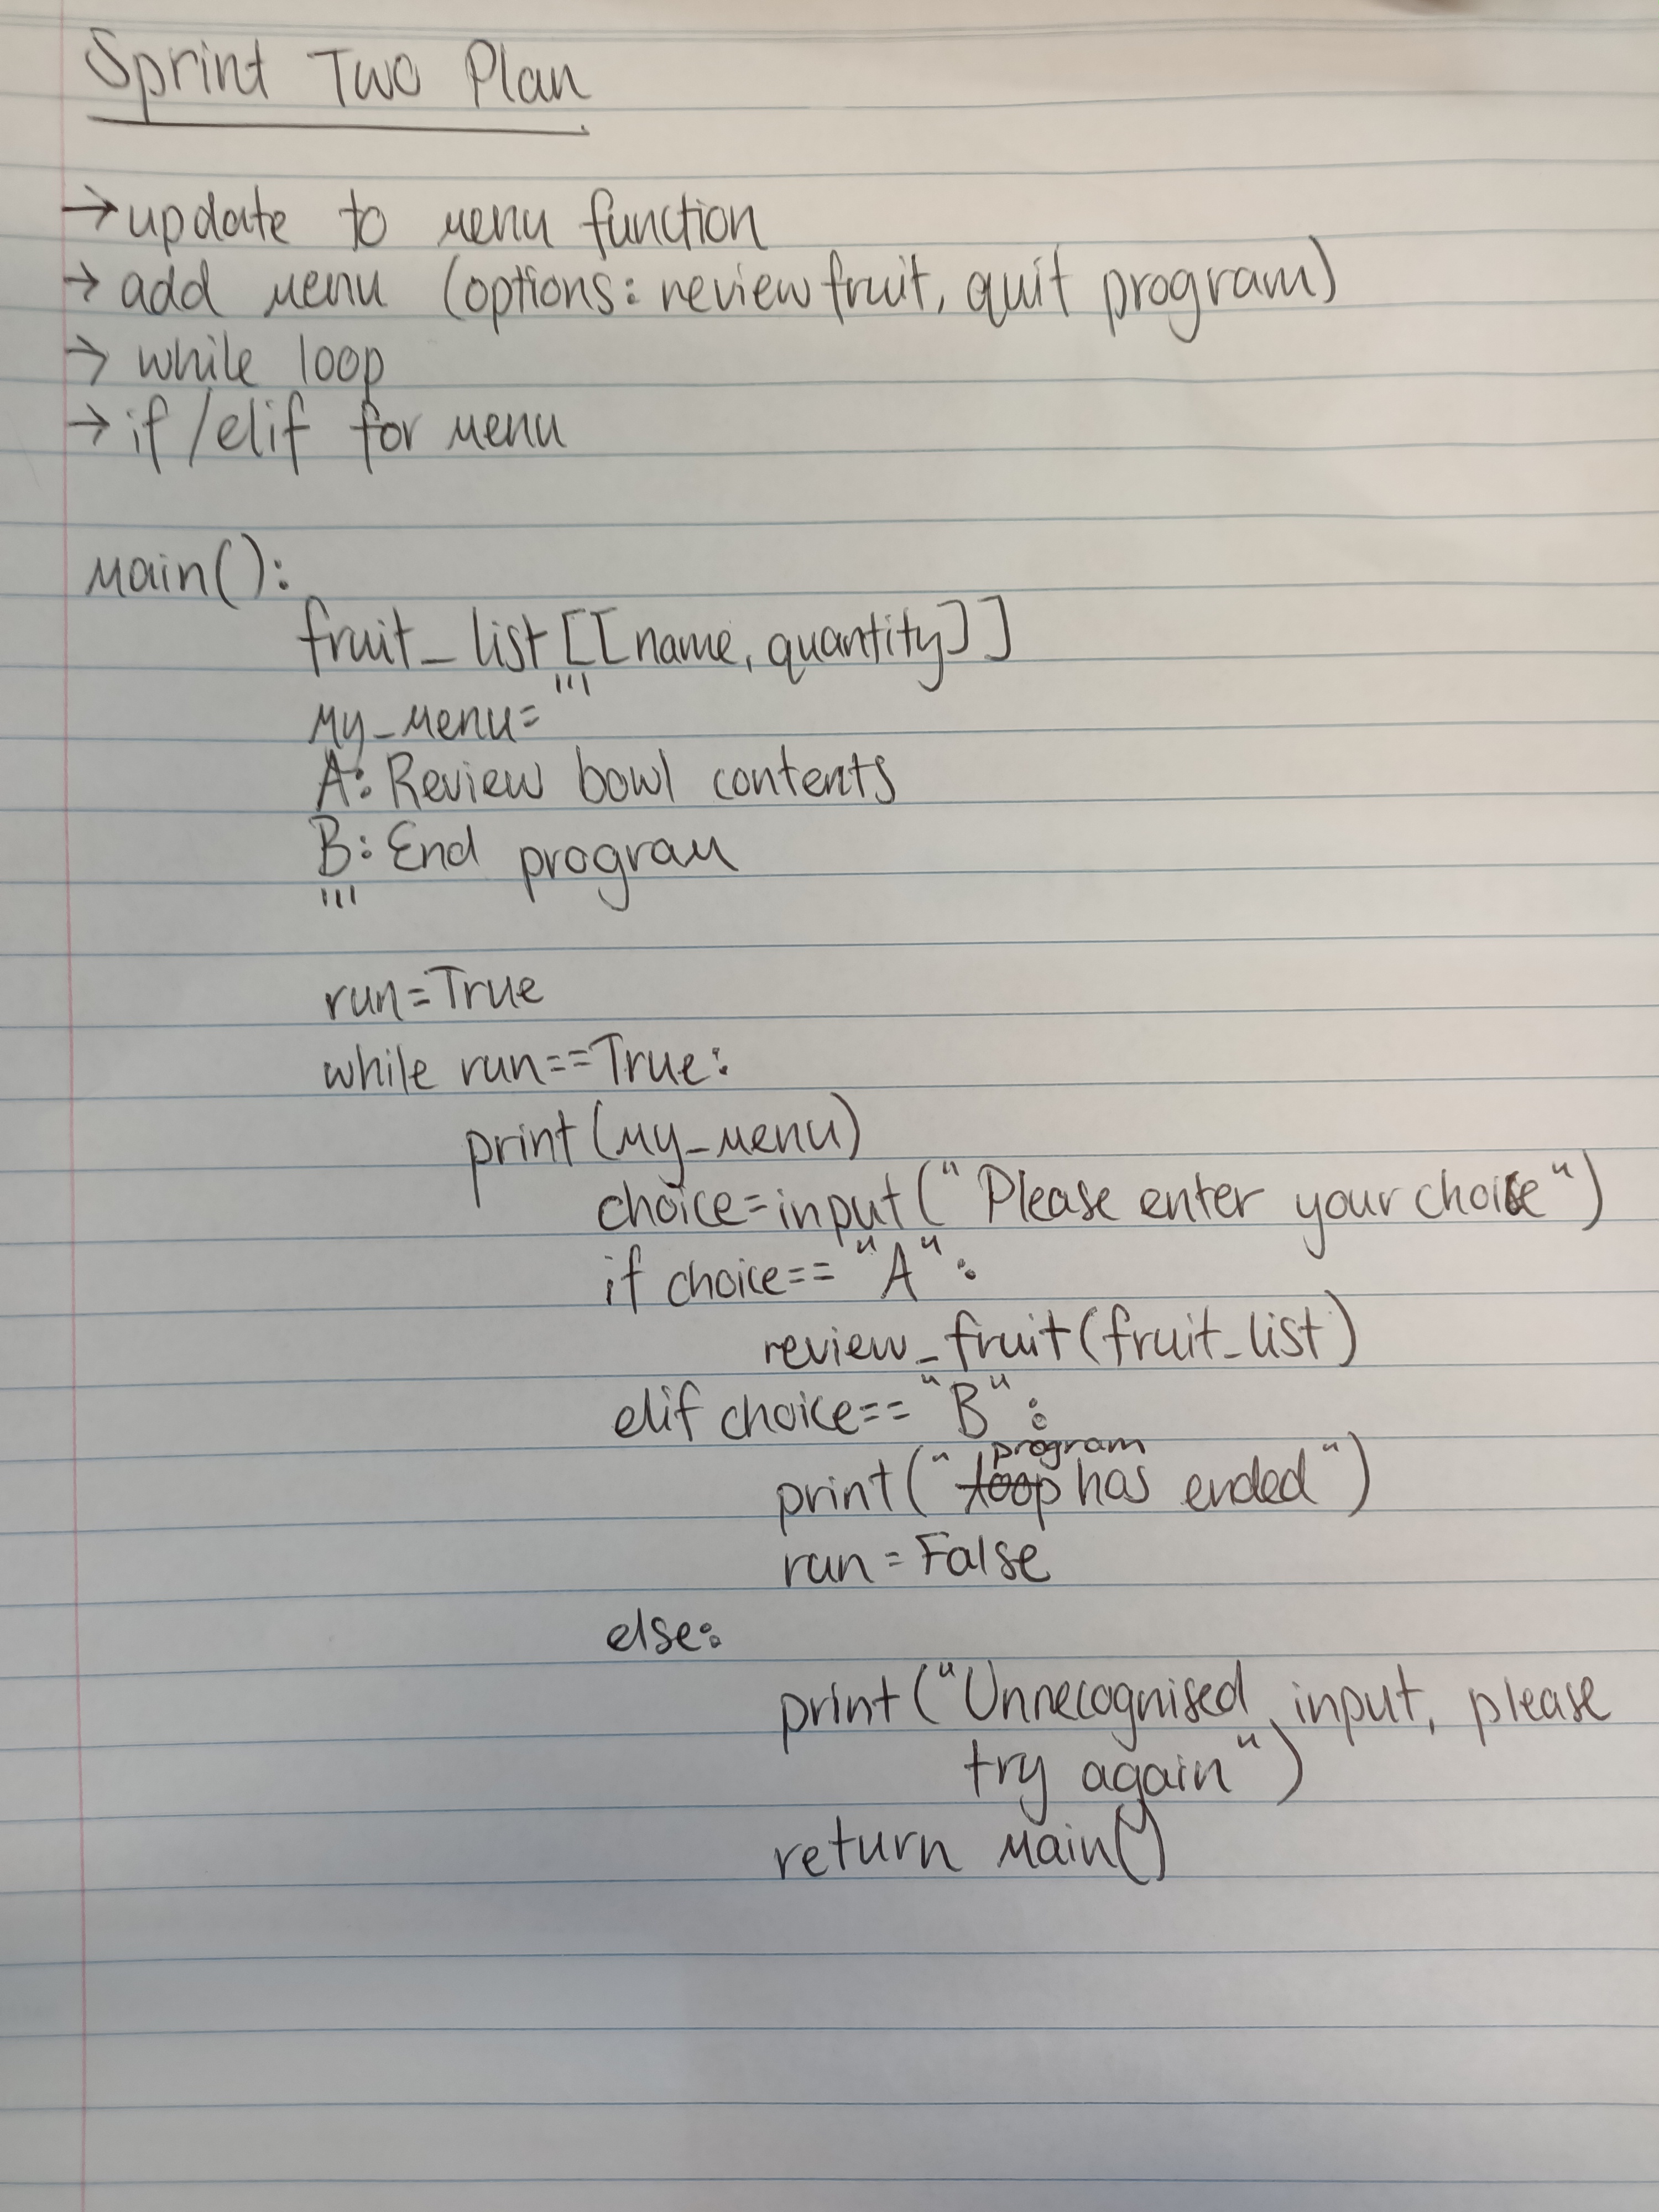 Sprint Two Plan
→ update to menu function
→ add menu (options: review fruit, quit program)
→ while loop
→ if/elif for menu
main():
fruit_list[[name, quantity]]
my_menu='''
A: Review bowl contents
B: End program
'''
run=True
while run==True:
print(my_menu)
choice=input("Please enter your choice")
if choice== "A":
review_fruit(fruit_list)
elif choice== "B":
program
print("loop has ended")
run=False
else:
print("Unrecognised input, please
try again")
return main()